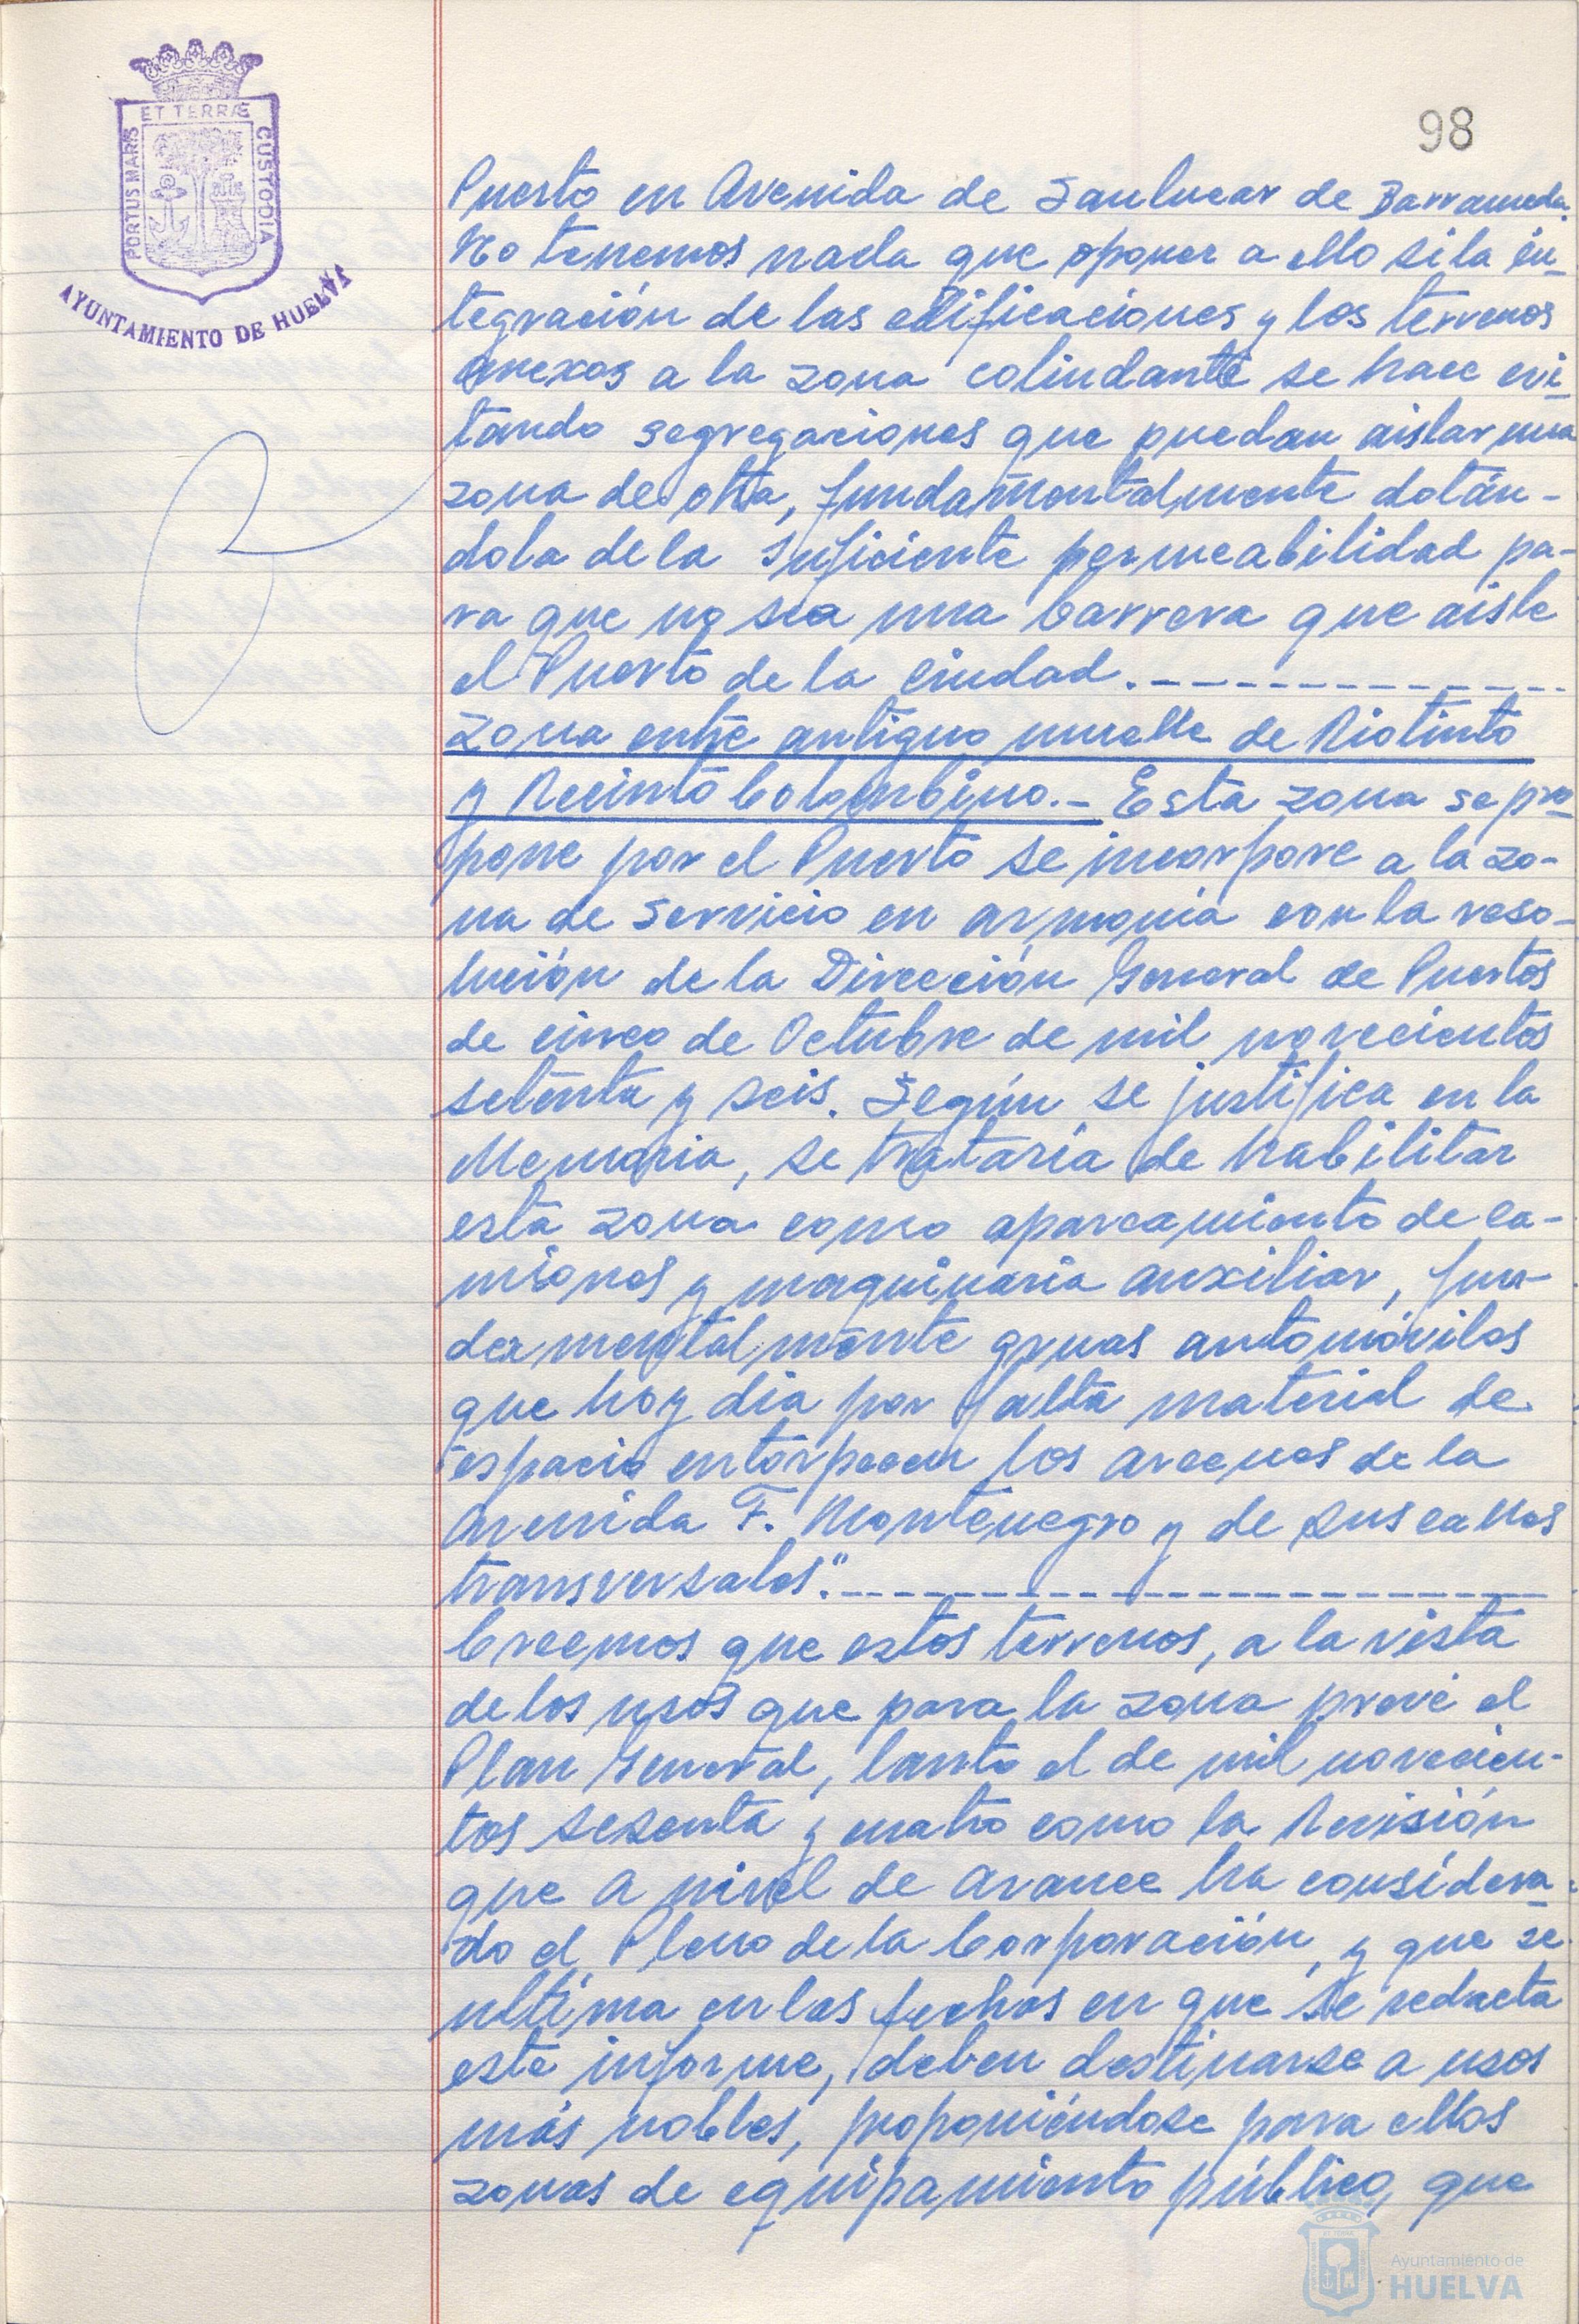 98
ET TERRÆ
PORTUS MARIS
CUSTODIA
AYUNTAMIENTO DE HUELVA
Puerto en Avenida de Sanlucar de Barrameda.
No tenemos nada que oponer a ello si la in-
tegración de las edificaciones y los terrenos
anexos a la zona colindante se hace evi-
tando segregaciones que puedan aislar una
zona de otra, fundamentalmente dotán-
dola de la suficiente permeabilidad pa-
ra que no sea una barrera que aisle
el Puerto de la ciudad.
Zona entre antiguo muelle de Riotinto
y Recinto Colombino.- Esta zona se pro-
pone por el Puerto se incorpore a la zo-
na de servicio en armonía con la reso-
lución de la Dirección General de Puertos
de cinco de Octubre de mil novecientos
setenta y seis. Según se justifica en la
Memoria, se trataría de habilitar
esta zona como aparcamiento de ca-
miones y maquinaria auxiliar, fun-
damentalmente gruas automóviles
que hoy día por falta material de
espacio entorpecen los accesos de la
Avenida F. Montenegro y de sus calles
transversales".
Creemos que estos terrenos, a la vista
de los usos que para la zona prevé el
Plan General, tanto el de mil novecien-
tos sesenta y cuatro como la Revisión
que a nivel de avance ha considera-
do el Pleno de la Corporación, y que se
ultima en las fechas en que se redacta
este informe, deben destinarse a usos
más nobles, proponiéndose para ellos
zonas de equipamiento público, que
Ayuntamiento de
HUELVA